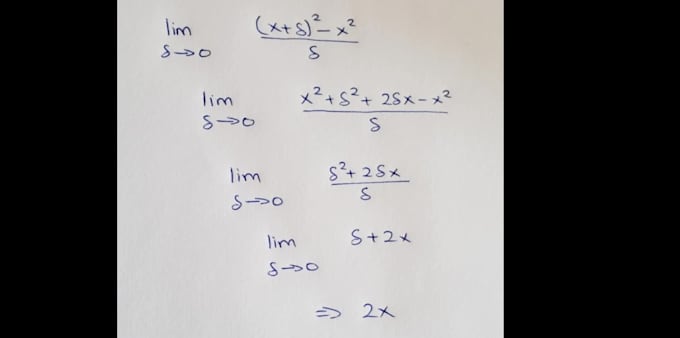 lim δ→0 (x+δ)² − x² / δ
lim δ→0 x² + δ² + 2δx − x² / δ
lim δ→0 δ² + 2δx / δ
lim δ→0 δ + 2x
⇒ 2x